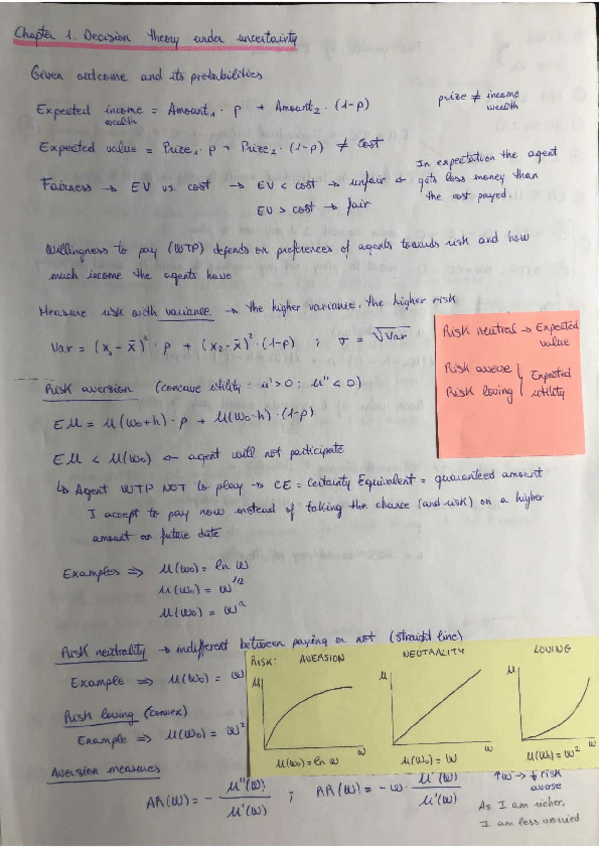 Chapter 1. Decision theory under uncertainty
Given outcome and its probabilities
Expected income = Amount₁ · p + Amount₂ · (1-p)
wealth
prize ≠ income
wealth
Expected value = Prize₁ · p + Prize₂ · (1-p) ≠ Cost
Fairness → EV vs. cost → EV < cost → unfair ←
EV > cost → fair
In expectation the agent
gets less money than
the cost payed.
Willingness to pay (WTP) depends on preferences of agents towards risk and how
much income the agents have
Measure risk with variance → the higher variance, the higher risk
Var = (x₁ - x̄)² · p + (x₂ - x̄)² · (1-p) ; σ = √Var
Risk neutral → Expected
value
Risk averse } Expected
Risk loving } utility
Risk aversion (concave utility: u' > 0; u'' < 0)
Eu = u(w₀+h) · p + u(w₀-h) · (1-p)
Eu < u(w₀) ← agent will not participate
↳ Agent WTP NOT to play → CE = Certainty Equivalent = guaranteed amount
I accept to pay now instead of taking the chance (and risk) on a higher
amount on future date
Examples ⇒ u(w₀) = ln w
u(w₀) = w^1/2
u(w₀) = w^a
Risk neutrality → indifferent between paying or not (straight line)
Example ⇒ u(w₀) = w
Risk loving (convex)
Example ⇒ u(w₀) = w²
RISK: AVERSION NEUTRALITY LOVING
u u u
w w w
u(w₀) = ln w u(w₀) = w u(w₀) = w²
Aversion measures
AR(w) = - u''(w) / u'(w) ; RR(w) = -w · u''(w) / u'(w)
↑w → ↓ risk
averse
As I am richer,
I am less worried